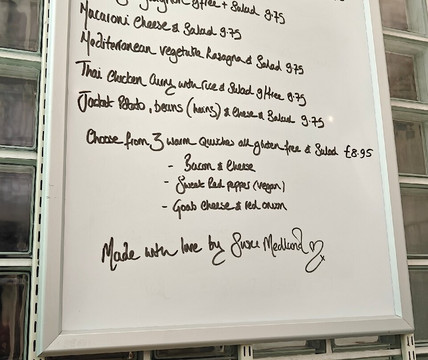 g/free + Salad 9.75
Macaroni Cheese & Salad 9.75
Mediterranean vegetable Lasagna & Salad 9.75
Thai Chicken Curry with rice & Salad g/free 9.75
Jacket Potato, beans (heinz) & Cheese & Salad 9.75
Choose from 3 warm Quiches all gluten free & Salad £8.95
- Bacon & Cheese
- Sweet Red pepper (vegan)
- Goats Cheese & red onion
Made with love by Susie Medland x